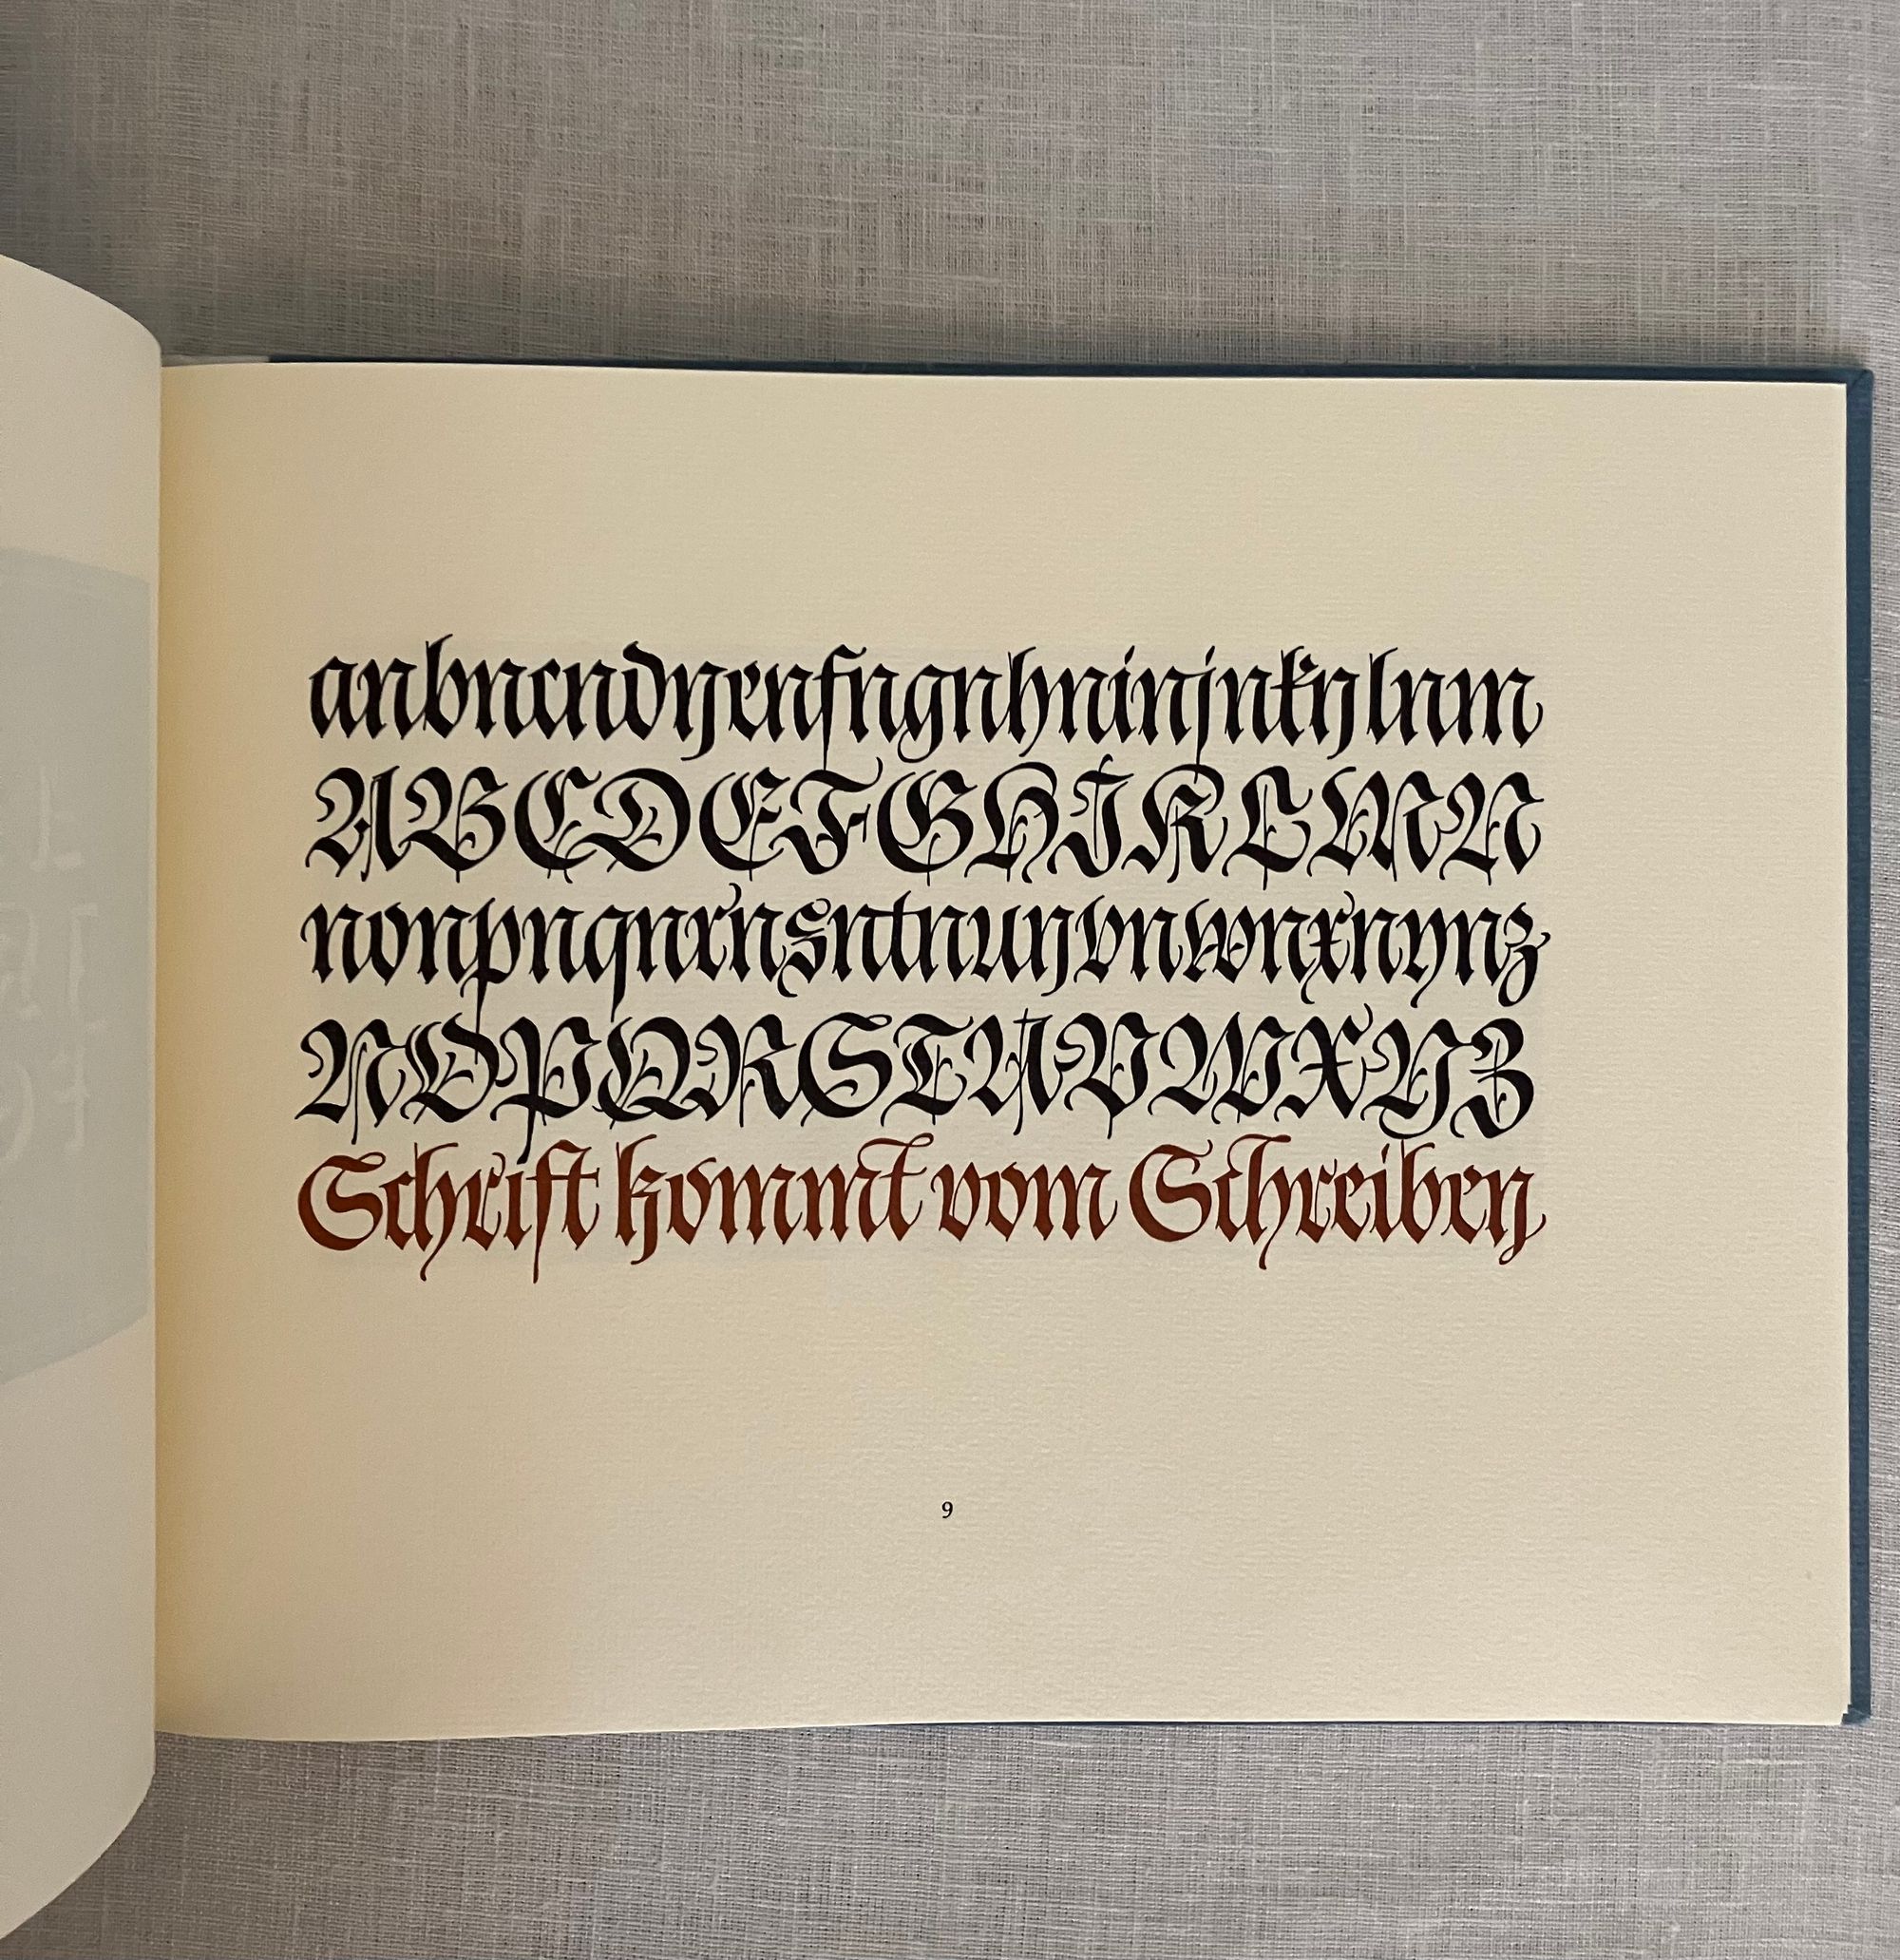 anbncndnenfngnhninjnknlnm
ABCDEFGHIKLMN
nonpnqnrnsntnunvnwnxnynz
NOPQRSTUVWXYZ
Schrift kommt vom Schreiben
9